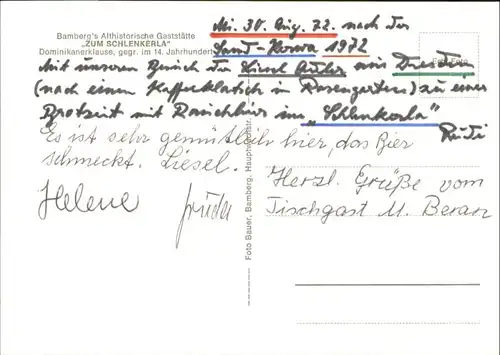 Bamberg's Althistorische Gaststätte
„ZUM SCHLENKERLA"
Dominikanerklause, gegr. im 14. Jahrhundert
Mi. 30. Aug. 72 nach der
Sand-Kerwa 1972
Mit unserem Besuch der Liesel aus Dresden
(nach einem Kaffeeklatsch im Rosengarten) zu einer
Brotzeit mit Rauchbier im „Schlenkerla"
Rudi
Es ist sehr gemütlich hier, das Bier
schmeckt. Liesel.
Helene
Herzl. Grüße vom
Tischgast M. Beran
Foto Bauer, Bamberg, Hauptwachstr.